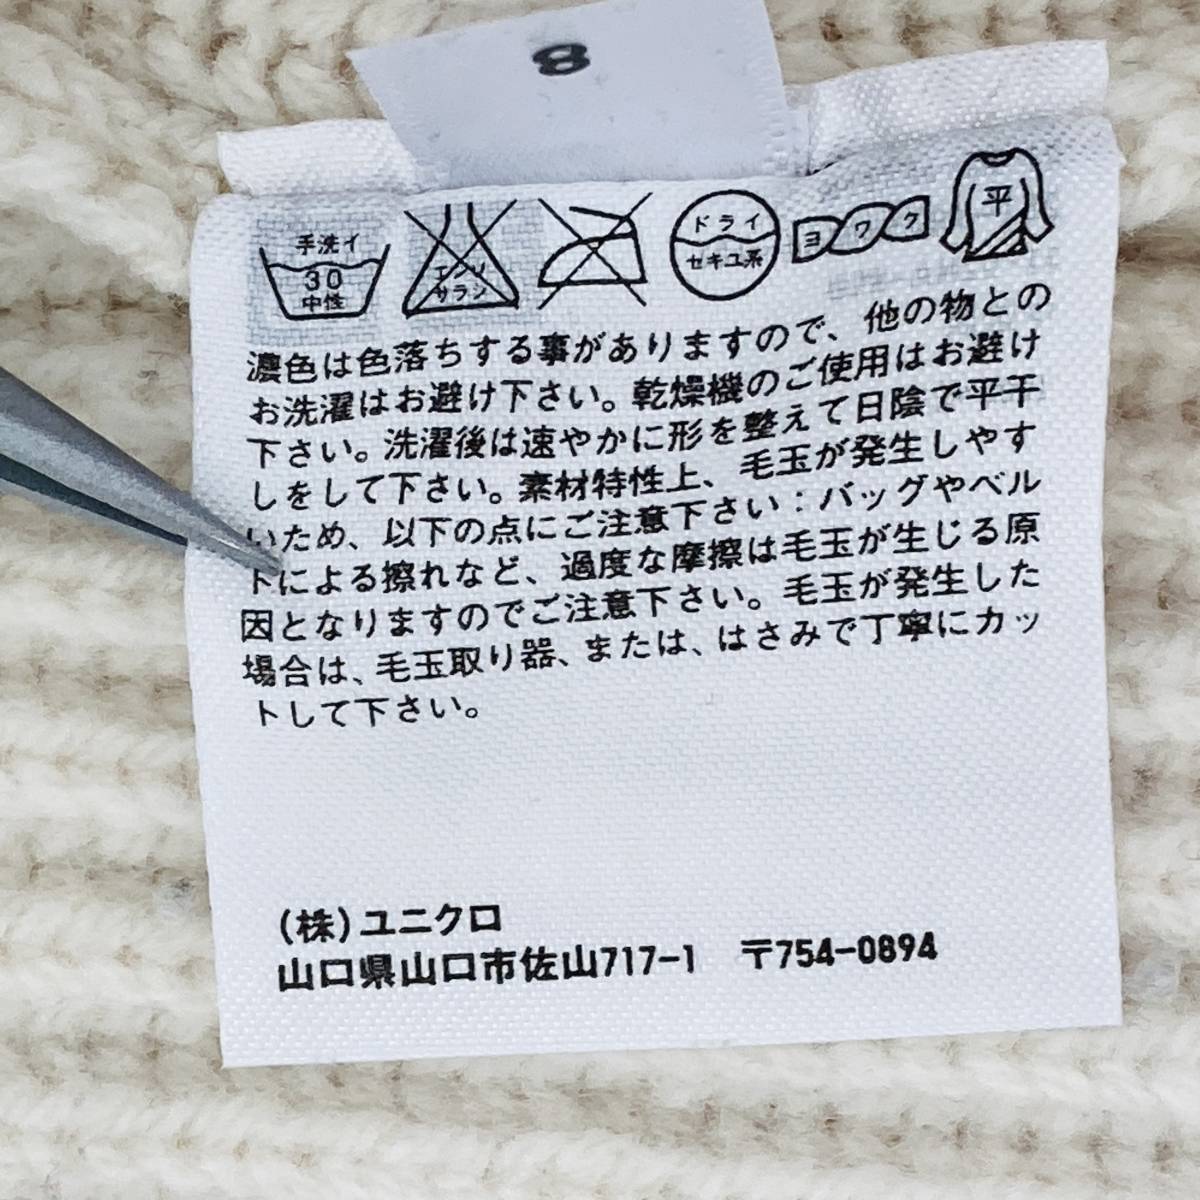 8
手洗イ
30
中性
エンソ
サラシ
ドライ
セキユ系
ヨワク
平
濃色は色落ちする事がありますので、他の物との
お洗濯はお避け下さい。乾燥機のご使用はお避け
下さい。洗濯後は速やかに形を整えて日陰で平干
しをして下さい。素材特性上、毛玉が発生しやす
いため、以下の点にご注意下さい：バッグやベル
トによる擦れなど、過度な摩擦は毛玉が生じる原
因となりますのでご注意下さい。毛玉が発生した
場合は、毛玉取り器、または、はさみで丁寧にカッ
トして下さい。
(株)ユニクロ
山口県山口市佐山717-1 〒754-0894